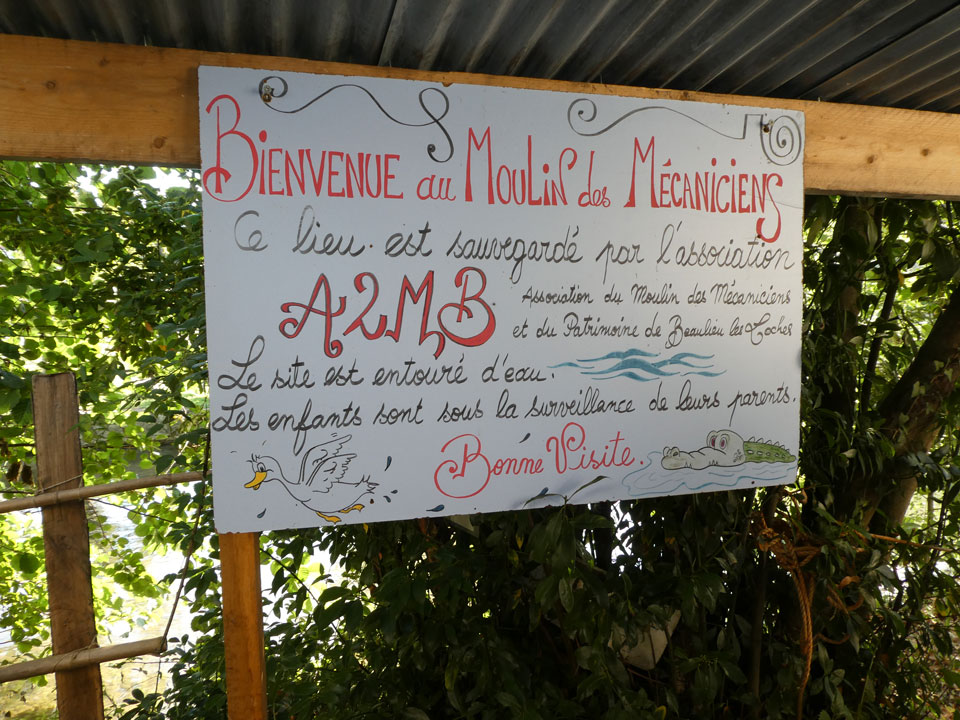 Bienvenue au Moulin des Mécaniciens
Ce lieu est sauvegardé par l'association
A2MB
Association du Moulin des Mécaniciens
et du Patrimoine de Beaulieu les Loches
Le site est entouré d'eau.
Les enfants sont sous la surveillance de leurs parents.
Bonne Visite.